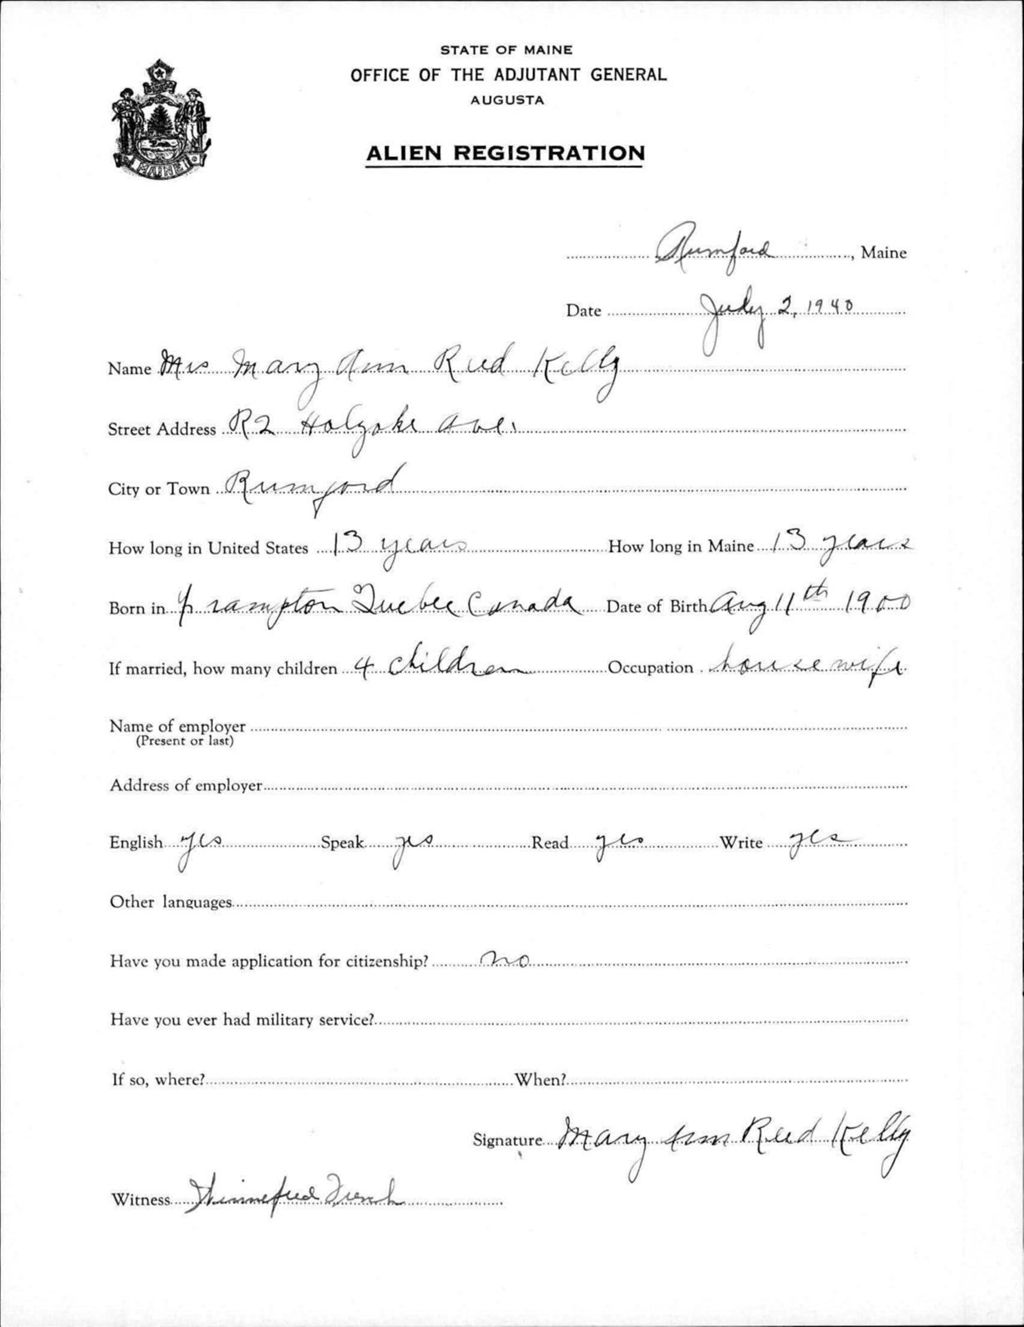 STATE OF MAINE
OFFICE OF THE ADJUTANT GENERAL
AUGUSTA
ALIEN REGISTRATION
MAINE
Rumford, Maine
Date July 2, 1940
Name Mrs Mary Ann Reed Kelly
Street Address R2 Holyoke Ave.
City or Town Rumford
How long in United States 13 years How long in Maine 13 years
Born in Frampton Quebec Canada Date of Birth Aug 11th 1900
If married, how many children 4 children Occupation housewife
Name of employer
(Present or last)
Address of employer
English yes Speak yes Read yes Write yes
Other languages
Have you made application for citizenship? no
Have you ever had military service?
If so, where? When?
Signature Mary Ann Reed Kelly
Witness Winnefred French